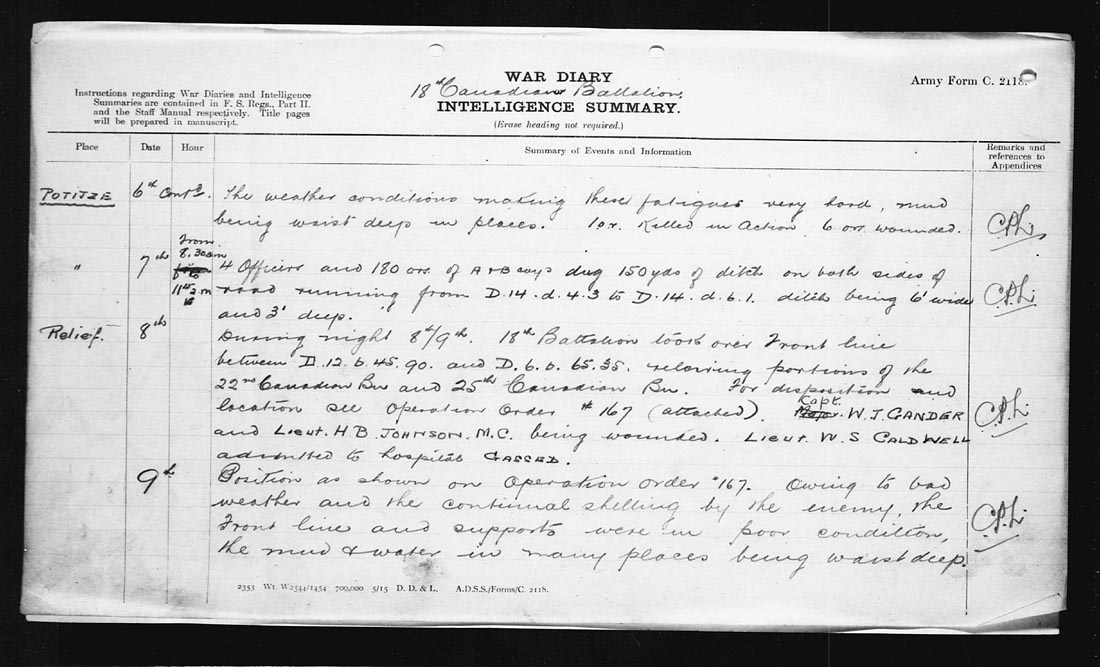 WAR DIARY
18th Canadian Battalion.
INTELLIGENCE SUMMARY.
(Erase heading not required.)
Army Form C. 2118.
Instructions regarding War Diaries and Intelligence
Summaries are contained in F. S. Regs., Part II.
and the Staff Manual respectively. Title pages
will be prepared in manuscript.
Place Date Hour Summary of Events and Information
Remarks and
references to
Appendices
POTITZE 6th Contd. The weather conditions making these fatigues very hard, mud
being waist deep in places. 1 o.r. Killed in Action 6 o.r. wounded.
" 7th From 8.30am to 11 a.m
4 Officers and 180 o.r. of A & B coys dug 150 yds of ditch on both sides of
road running from D.14.d.4.3 to D.14.d.6.1. ditch being 6' wide
and 3' deep.
Relief. 8th During night 8th/9th. 18th Battalion took over Front line
between D.12.b.45.90. and D.6.b.65.35. relieving portions of the
22nd Canadian Bn and 25th Canadian Bn. For disposition and
location see Operation Order #167 (attached). Capt. W. J. GANDER
and Lieut. H B. JOHNSON. M.C. being wounded. Lieut. W. S CALDWELL
admitted to hospital GASSED.
9th Position as shown on Operation Order #167. Owing to bad
weather and the continual shelling by the enemy, the
Front line and supports were in poor condition,
the mud & water in many places being waist deep.
2353 Wt. W2544/1454 700,000 5/15 D. D. & L. A.D.S.S./Forms/C. 2118.